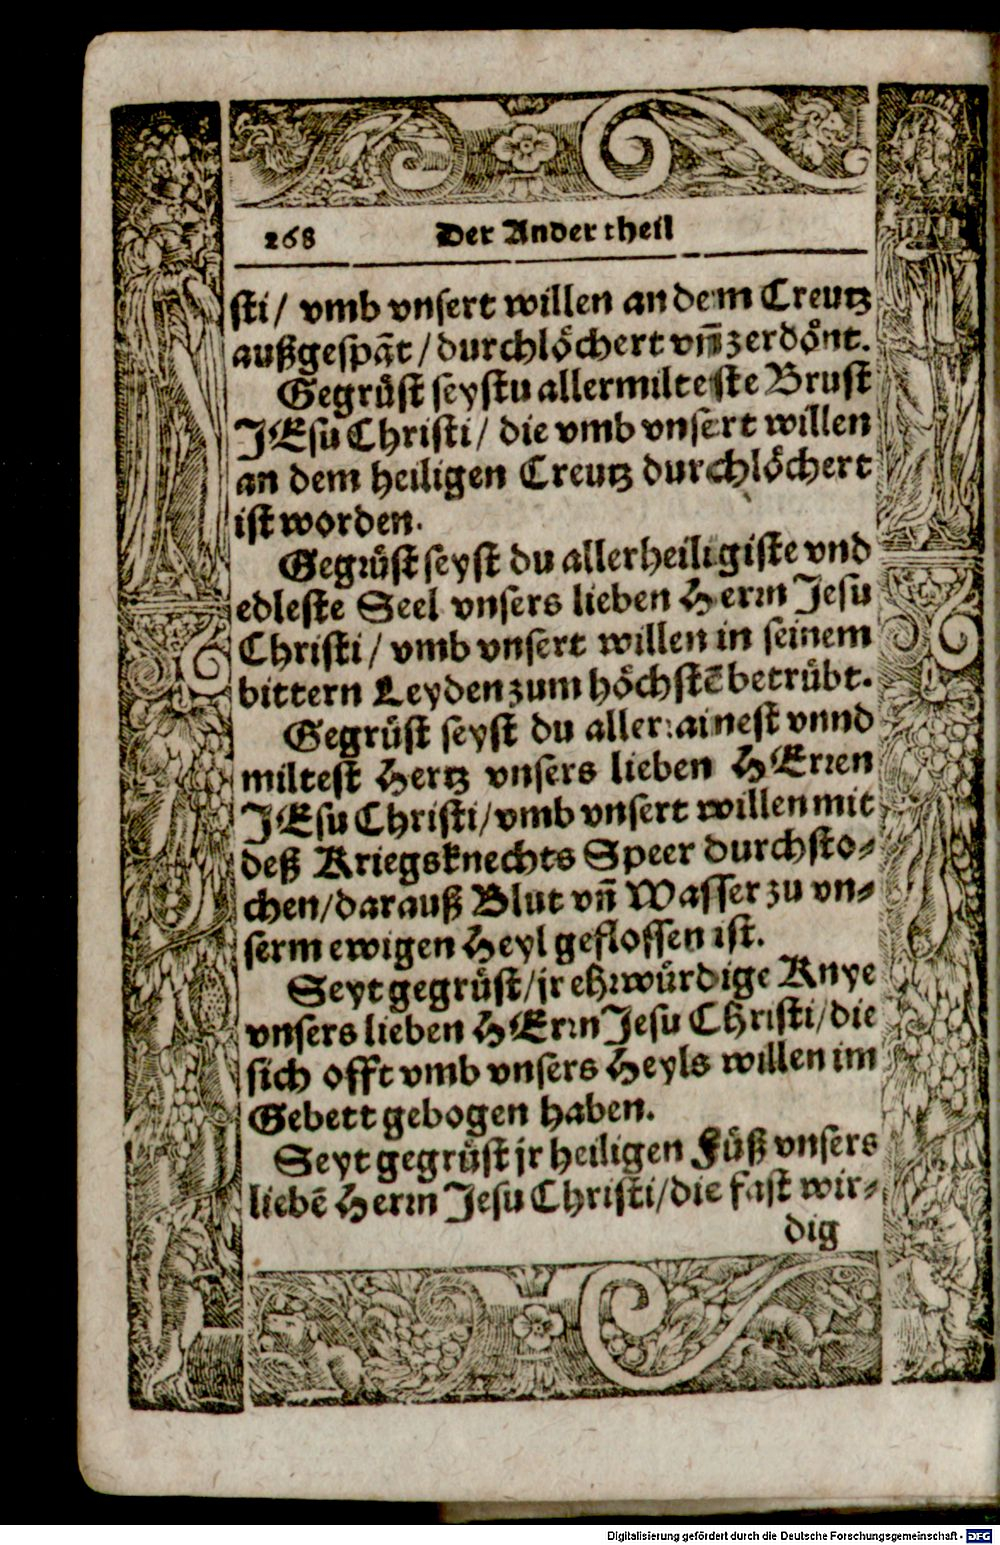 268 Der Ander theil
sti/ vmb vnsert willen an dem Creutz
außgespāt/durchlöchert vn̄ zerdönt.
Gegrůst seystu allermilteste Brust
JEsu Christi/ die vmb vnsert willen
an dem heiligen Creutz durchlöchert
ist worden.
Gegrůst seyst du allerheiligiste vnd
edleste Seel vnsers lieben Herrn Jesu
Christi/ vmb vnsert willen in seinem
bittern Leyden zum höchstē betrůbt.
Gegrůst seyst du allerrainest vnnd
miltest Hertz vnsers lieben HErren
JEsu Christi/vmb vnsert willen mit
deß Kriegsknechts Speer durchsto⸗
chen/darauß Blut vn̄ Wasser zu vn⸗
serm ewigen Heyl geflossen ist.
Seyt gegrůst/jr ehrwůrdige Knye
vnsers lieben HErrn Jesu Christi/die
sich offt vmb vnsers Heyls willen im
Gebett gebogen haben.
Seyt gegrůst jr heiligen Fůß vnsers
liebē Herrn Jesu Christi/die fast wir⸗
dig
Digitalisierung gefördert durch die Deutsche Forschungsgemeinschaft - DFG